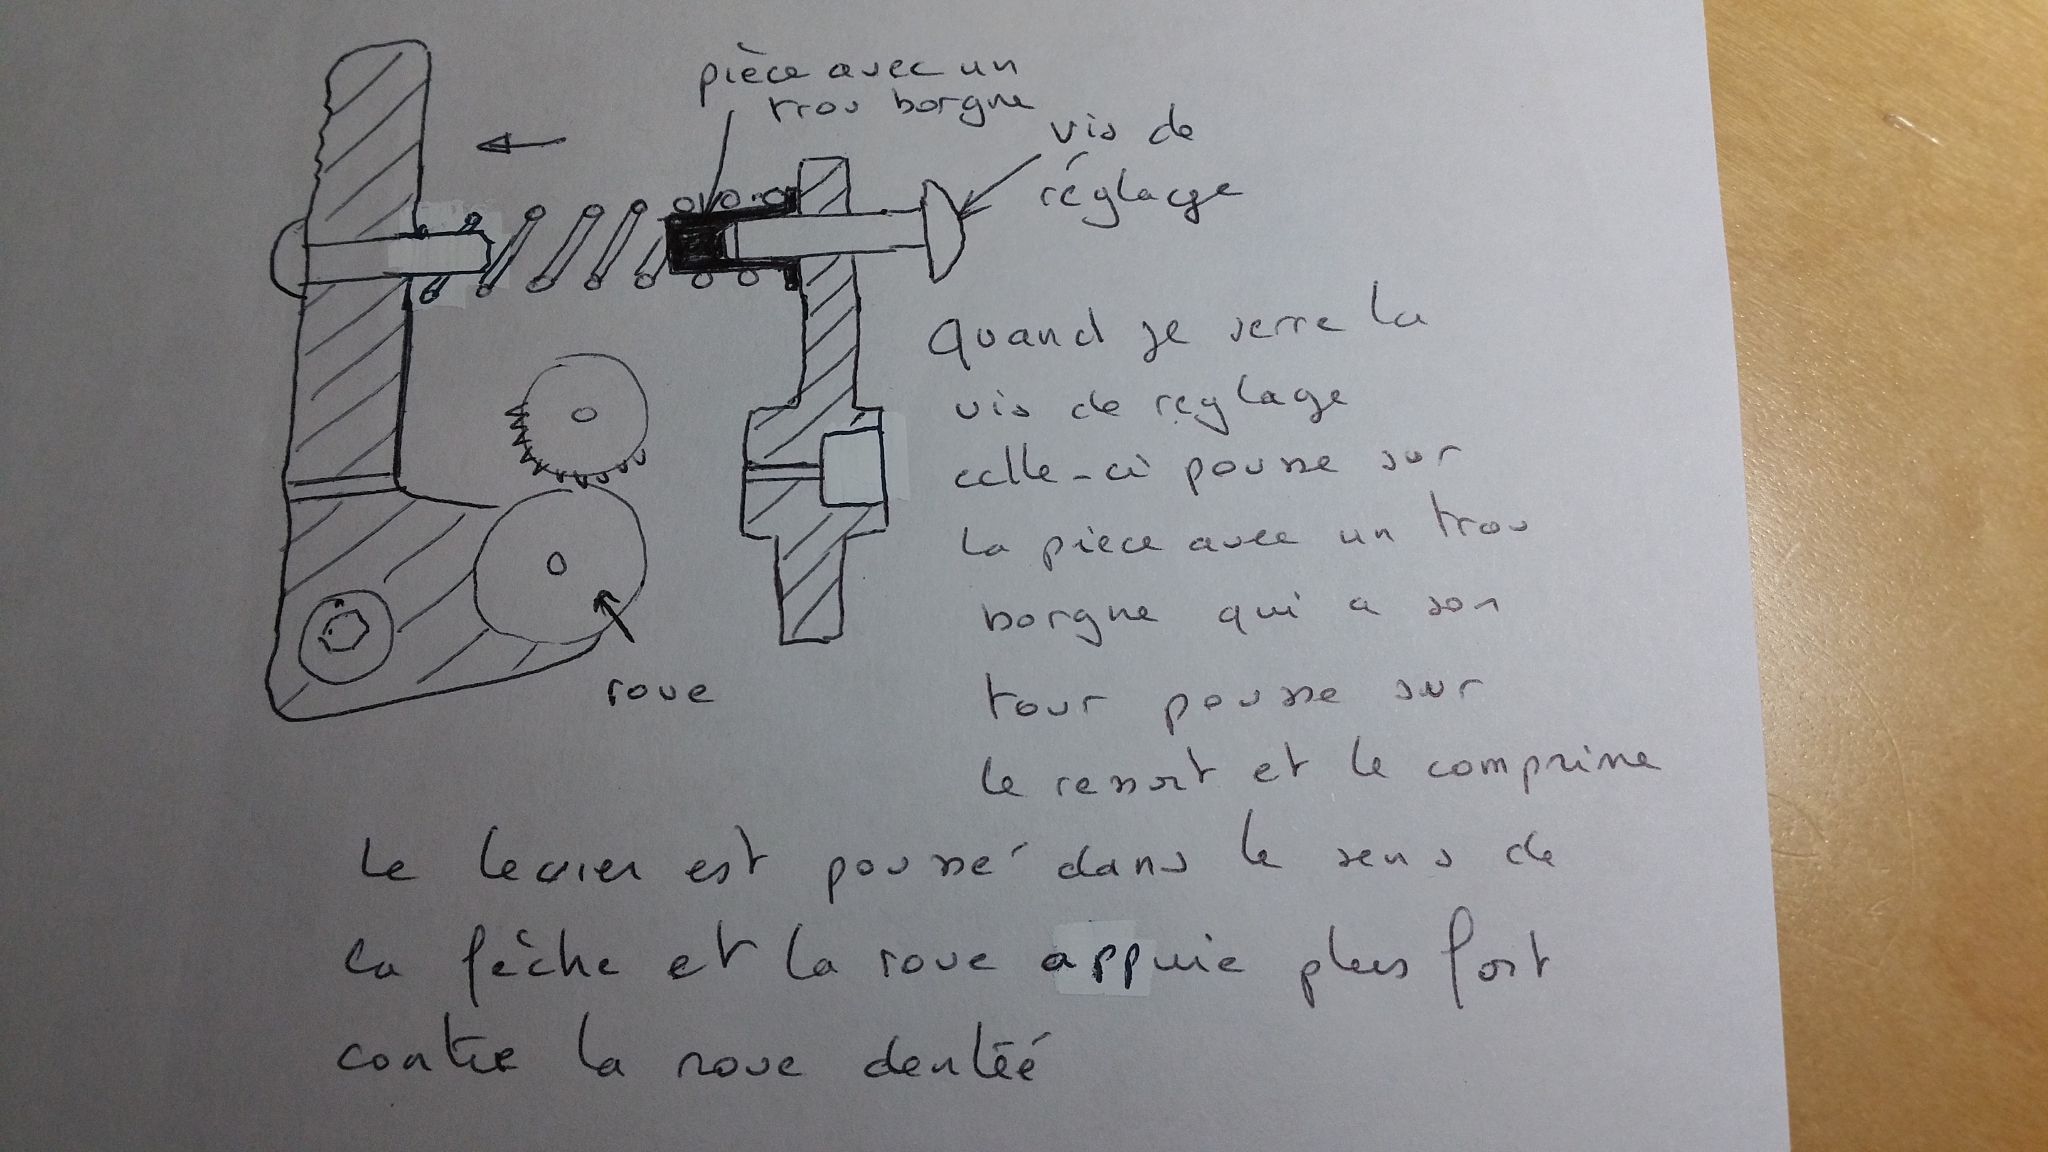 pièce avec un
trou borgne
vis de
réglage
Quand je serre la
vis de reglage
celle-ci pousse sur
la pièce avec un trou
borgne qui a son
tour pousse sur
le ressort et le comprime
roue
Le levier est poussé dans le sens de
la flèche et la roue appuie plus fort
contre la roue dentéé